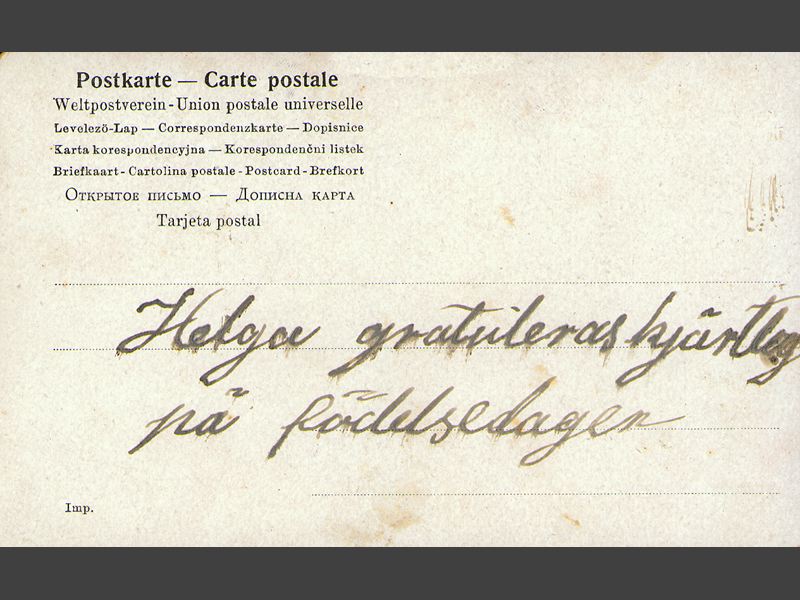 Postkarte — Carte postale
Weltpostverein - Union postale universelle
Levelező-Lap — Correspondenzkarte — Dopisnice
Karta korespondencyjna — Korespondenční listek
Briefkaart - Cartolina postale - Postcard - Brefkort
Открытое письмо — Дописна карта
Tarjeta postal
Helga gratuleras hjärtleg
på födelsedagen
Imp.